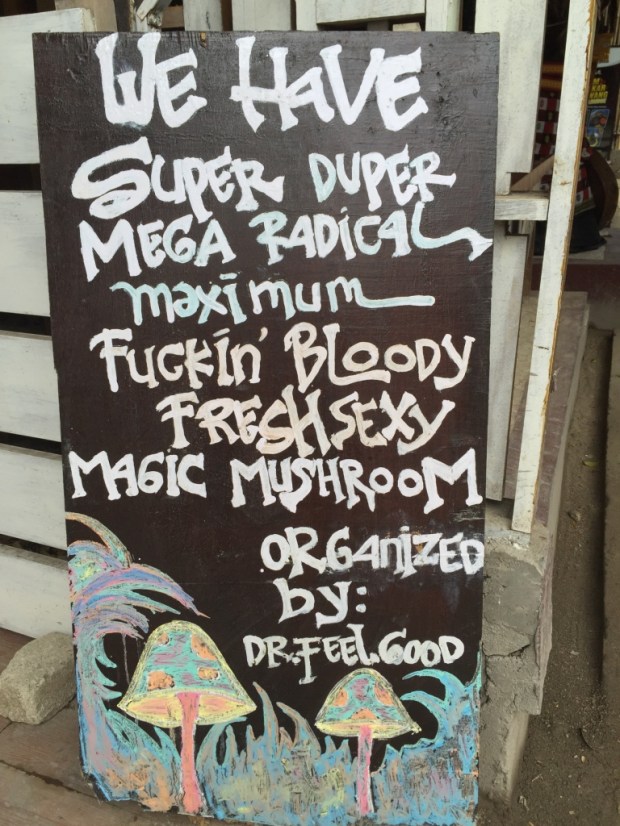 WE HAVE
SUPER DUPER
MEGA RADICAL
maximum
FUCKIN' BLOODY
FRESH SEXY
MAGIC MUSHROOM
ORGANIZED
by:
DR. FEELGOOD